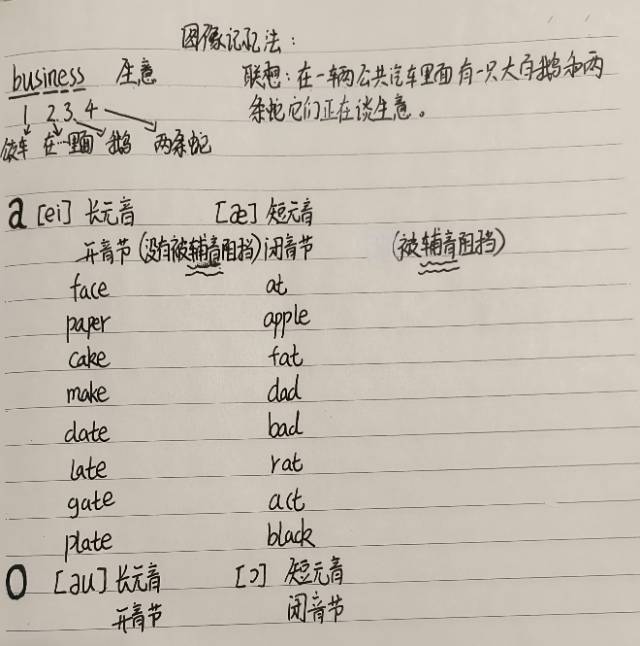 图像记忆法：
business 生意
联想：在一辆公共汽车里面有一只大白鹅和两
条蛇它们正在谈生意。
1 2 3 4
汽车 在…里面 鹅 两条蛇
a [ei] 长元音 [æ] 短元音
开音节 (没有被辅音阻挡) 闭音节 (被辅音阻挡)
face at
paper apple
cake fat
make dad
date bad
late rat
gate act
plate black
O [əu] 长元音 [ɔ] 短元音
开音节 闭音节